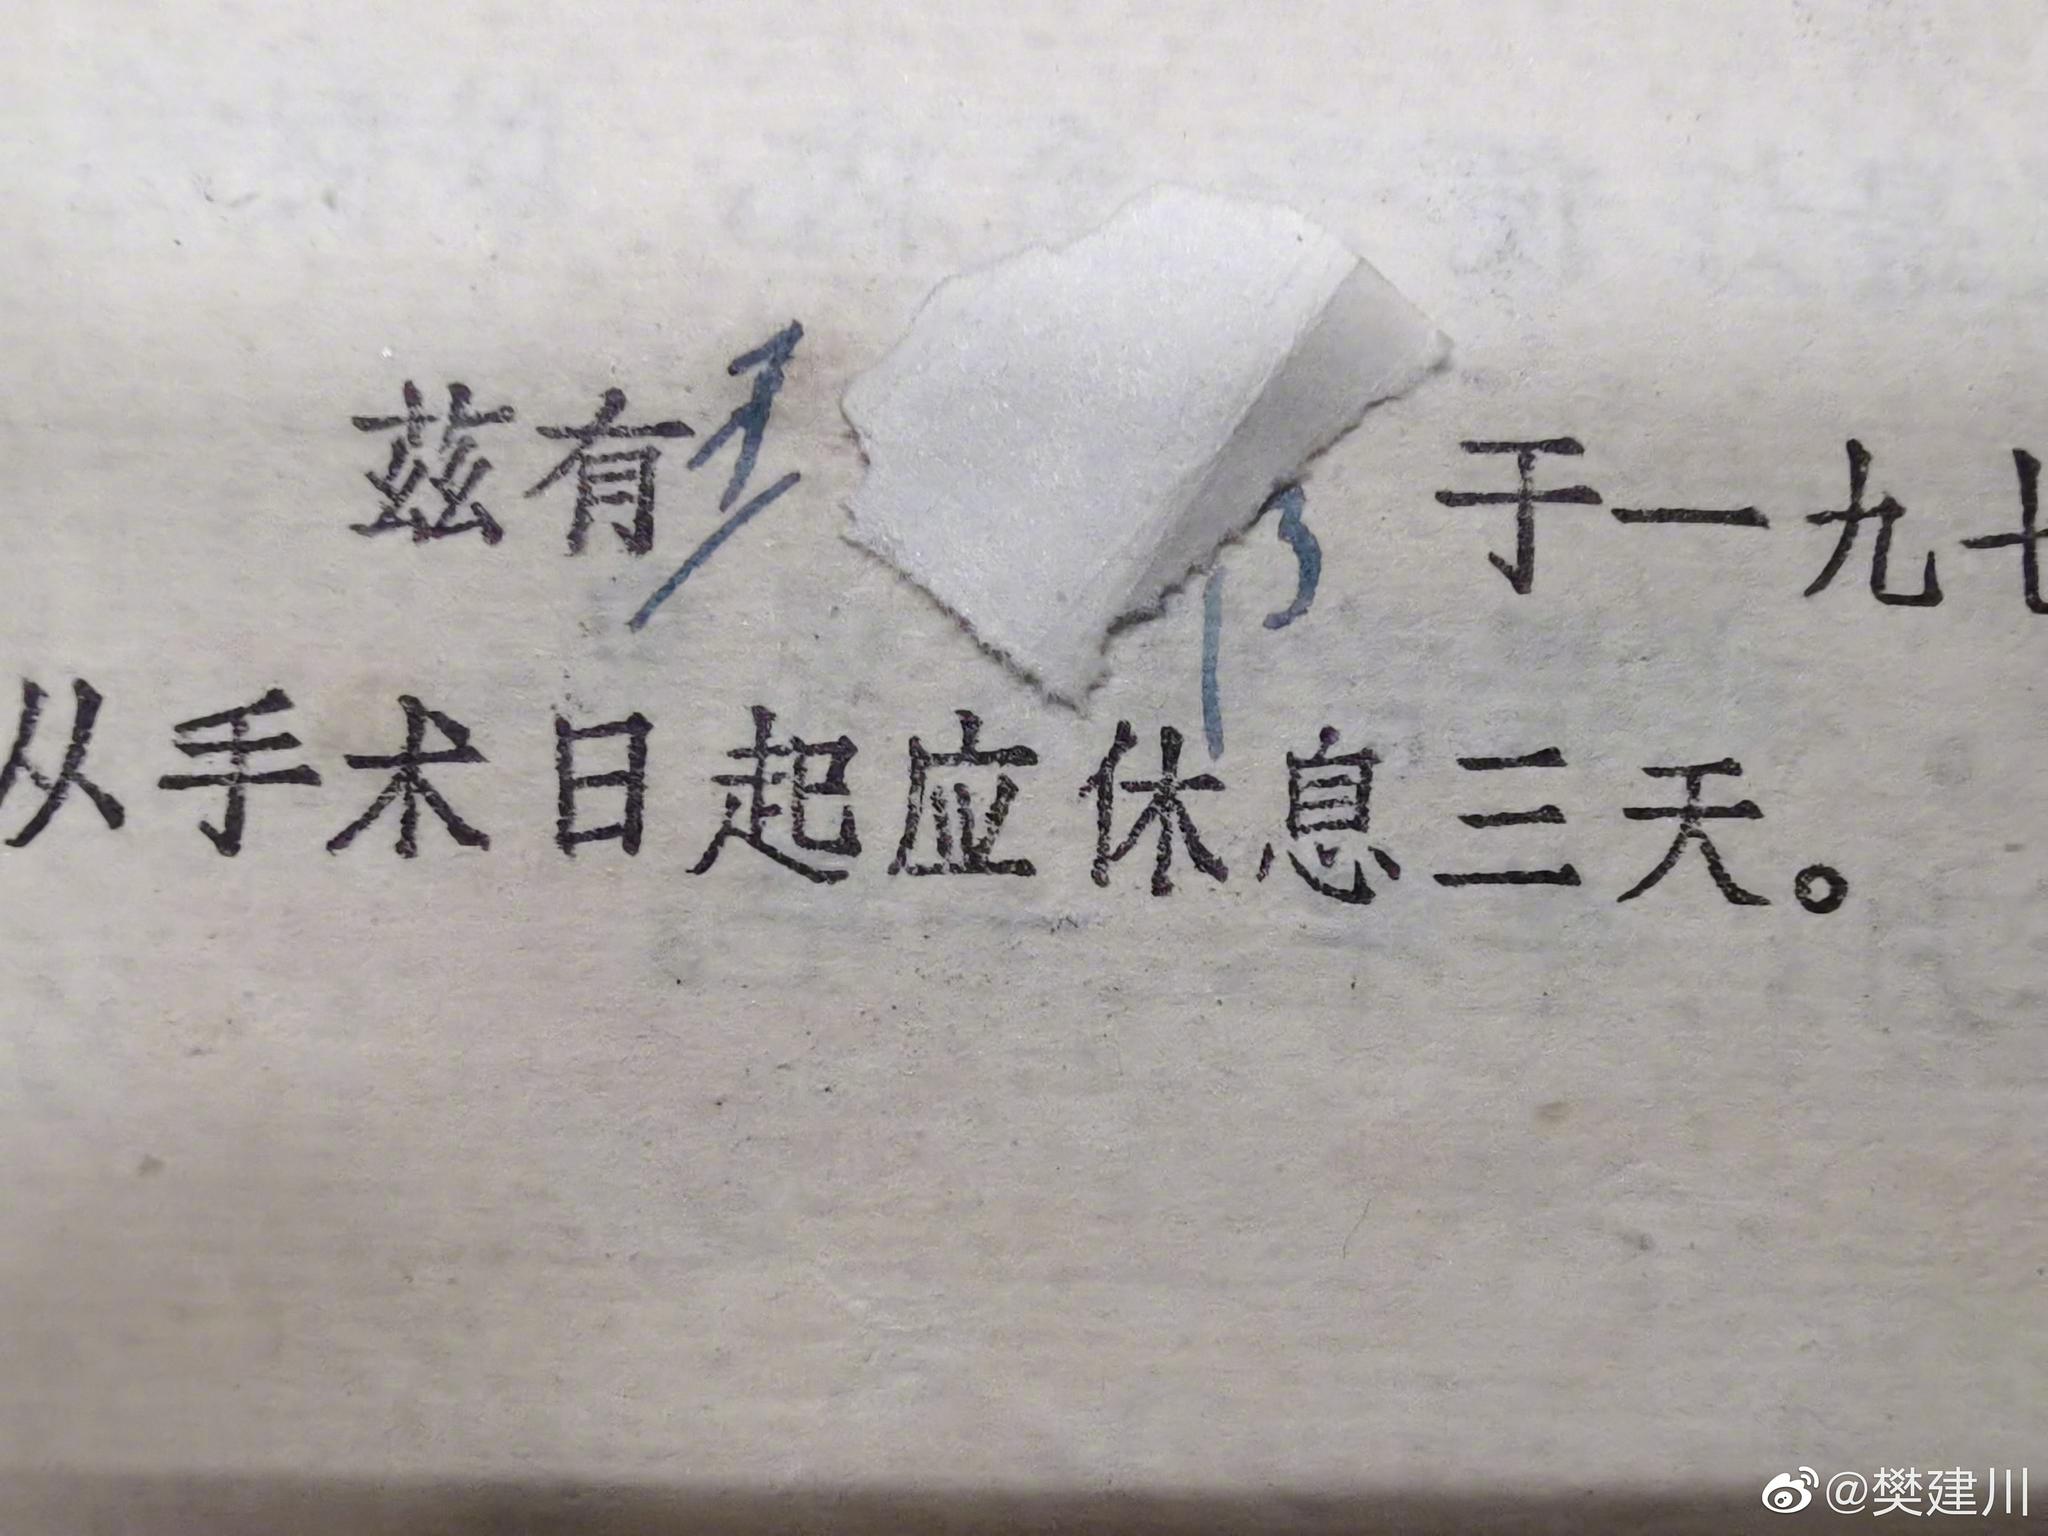 兹有王 于一九七
从手术日起应休息三天。
@樊建川